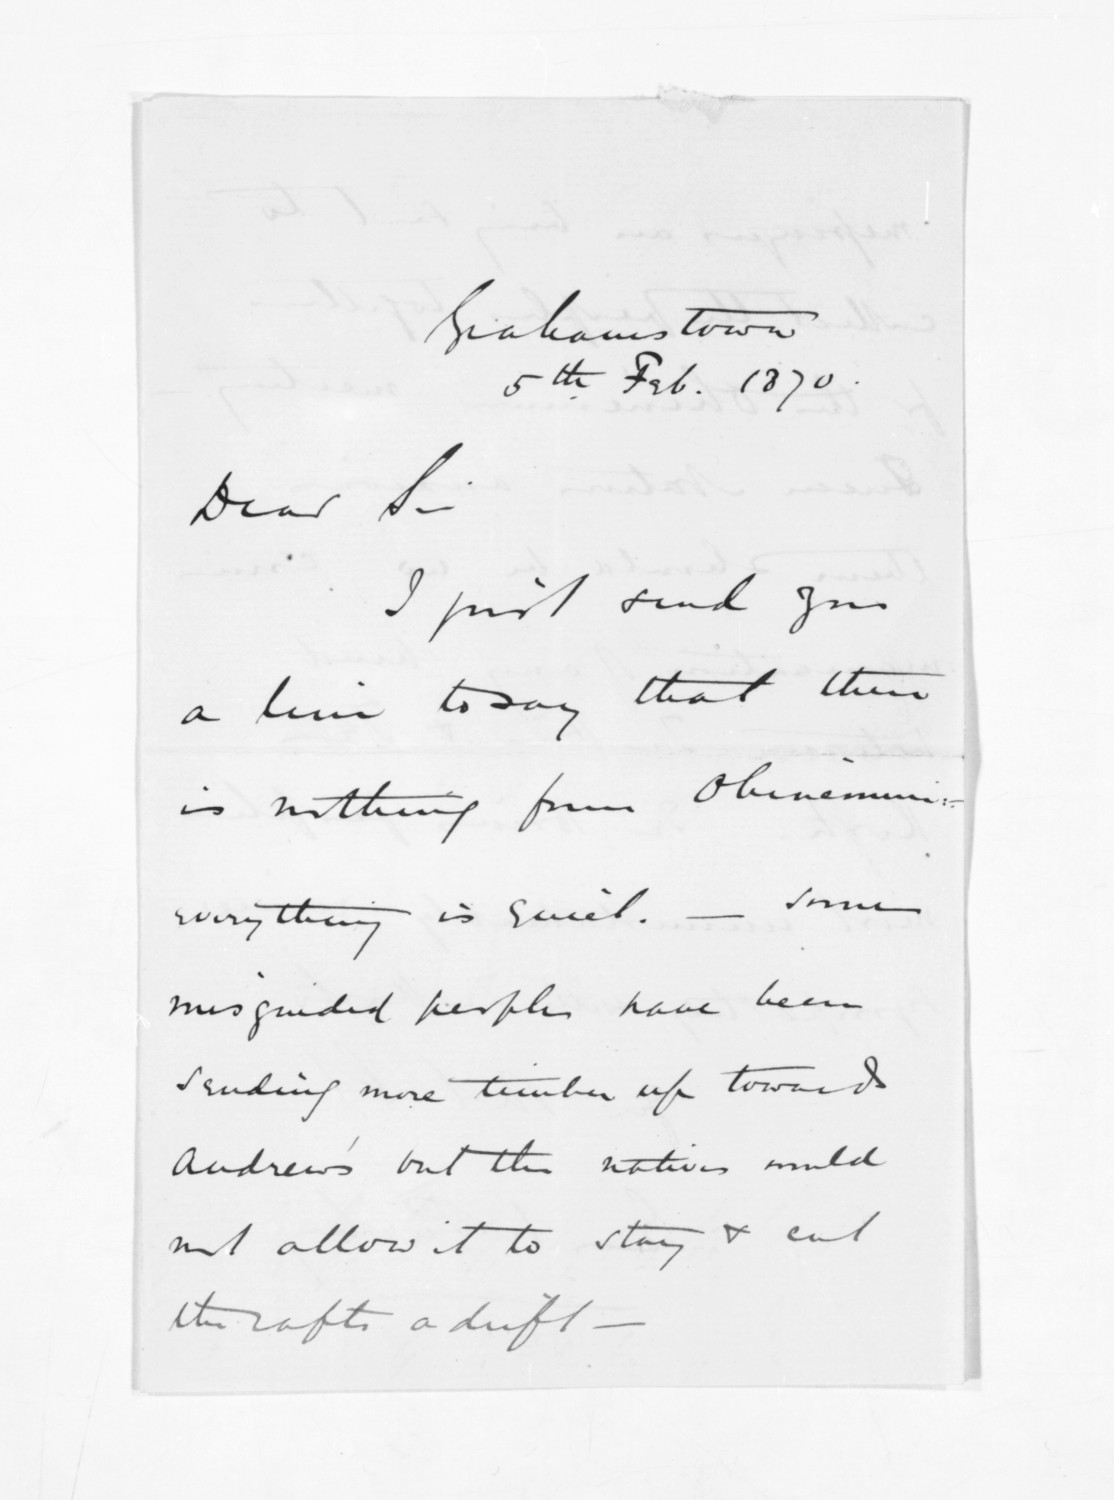 Grahamstown
5th Feb. 1870.
Dear Sir
I just send you
a line to say that there
is nothing from Ohinemuri:-
everything is quiet. — some
misguided people have been
sending more timber up towards
Andrew's but the natives would
not allow it to stay & cut
the rafts adrift —